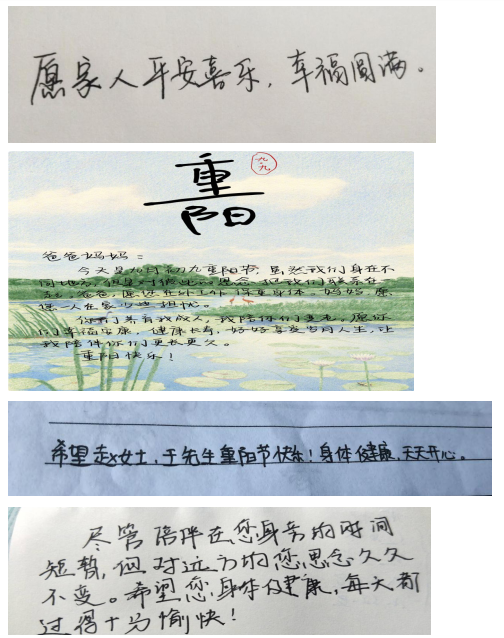 愿家人平安喜乐，幸福圆满。
重
九九
阳
爸爸妈妈：
今天是九月初九重阳节，虽然我们身在不
同地方，但是对彼此的思念把我们联系在
爸爸，愿您在外工作保重身体。妈妈，愿
您一人在家少些担忧。
你们养育我成人，我陪你们变老。愿你
们幸福安康，健康长寿，好好享受岁月人生，让
我陪伴你们更长更久。
重阳快乐！
希望赵女士，于先生重阳节快乐！身体健康，天天开心。
尽管陪伴在您身旁的时间
短暂，但对远方的您思念久久
不变。希望您身体健康，每天都
过得十分愉快！